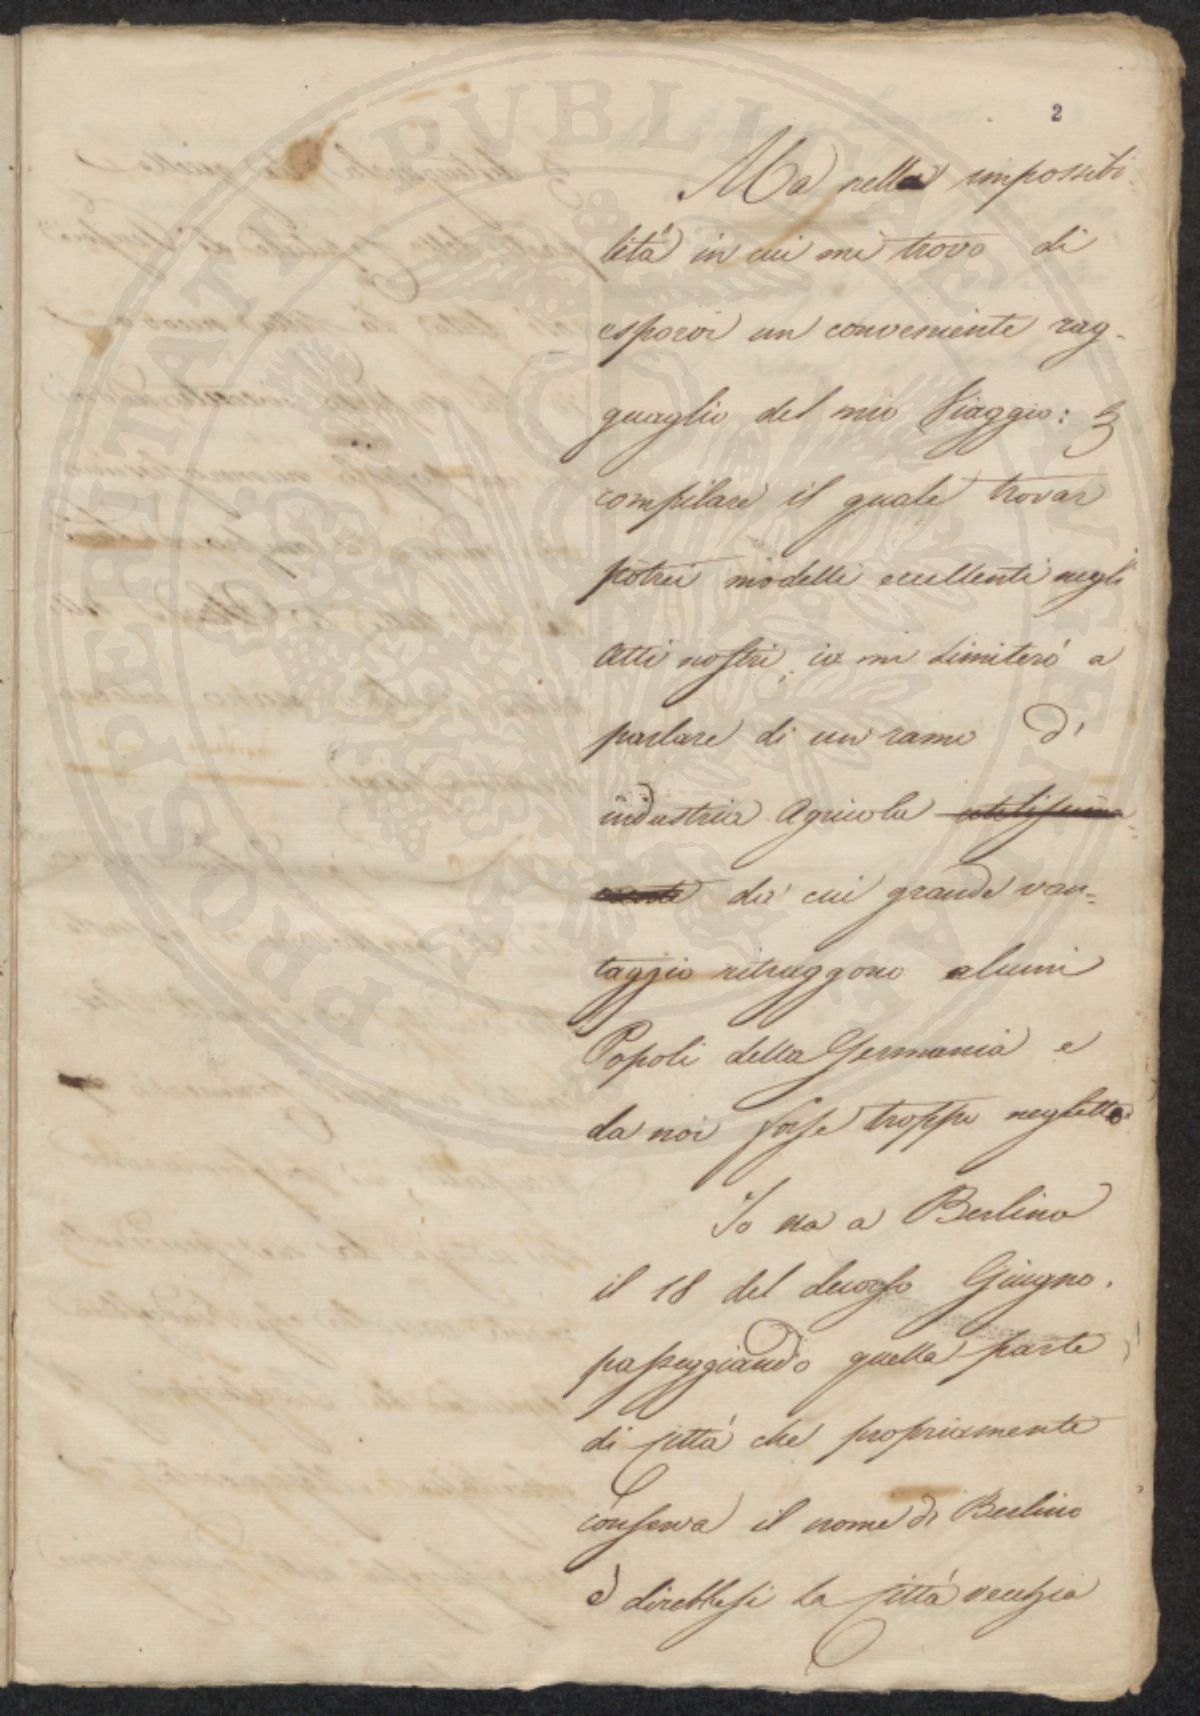 2
Ma nella impossibi
lità in cui mi trovo di
esporvi un conveniente rag-
guaglio del mio Viaggio: 
compilare il quale trovar
potrei modelli eccellenti negli
Atti nostri, io mi limiterò a
parlare di un ramo d'
industria Agricola utilissima
da cui grande van=
taggio ritraggono alcuni
Popoli della Germania e
da noi forse troppo negletto.
Io era a Berlino
il 18 del decorso Giugno.
passeggiando quella parte
di città che propriamente
conserva il nome di Berlino
e direbbesi la città vecchia
PROSPERITATI PUBLICAE AUGENDAE